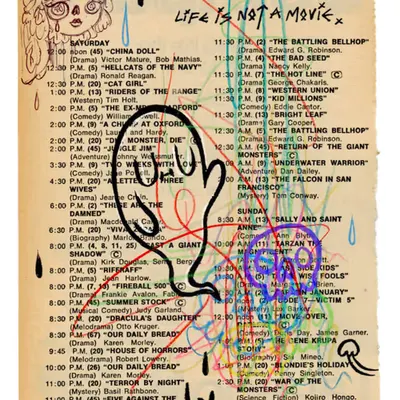 LIFE IS NOT A MOVIE.
SATURDAY
12:00 noon (45) "CHINA DOLL"
(Drama) Victor Mature, Bob Mathias.
12:00 P.M. (5) "HELLCATS OF THE NAVY"
(Drama) Ronald Reagan.
12:30 P.M. (20) "CAT GIRL"
1:00 P.M. (13) "RIDERS OF THE RANGE"
(Western) Tim Holt.
2:00 P.M. (5) "THE EX-MRS. BRADFORD"
(Comedy) William Powell.
2:00 P.M. (9) "A CHUMP AT OXFORD"
(Comedy) Laurel and Hardy.
2:00 P.M. (20) "DIE, MONSTER, DIE" Ⓒ
2:30 P.M. (45) "JUNGLE JIM"
(Adventure) Johnny Weissmuller.
3:30 P.M. (9) "TWO WEEKS WITH
(Comedy) Jane Powell.
5:20 P.M. (20) "A LETTER TO THREE
WIVES"
(Drama) Jeanne Crain.
6:00 P.M. (2) "THESE ARE THE
DAMNED"
(Drama) Macdonald Carey.
6:30 P.M. (20) "VIVA
(Biography) Marlon Brando.
8:00 P.M. (4, 8, 21, 25) "CAST A GIANT
SHADOW" Ⓒ
(Drama) Kirk Douglas, Senta Berger.
8:15 P.M. (5) "RIFFRAFF"
(Drama) Jean Harlow.
8:30 P.M. (7, 10) "FIREBALL 500" Ⓒ
(Drama) Frankie Avalon, Fabian.
8:45 P.M. (5) "SUMMER STOCK" Ⓒ
(Musical Comedy) Judy Garland.
8:30 P.M. (20) "DRACULA'S DAUGHTER"
(Melodrama) Otto Kruger.
8:30 P.M. (67) "OUR DAILY BREAD"
(Drama) Karen Morley.
9:45 P.M. (20) "HOUSE OF HORRORS"
(Melodrama) Robert Lowery.
10:00 P.M. (26) "OUR DAILY BREAD"
(Drama) Karen Morley.
11:00 P.M. (20) "TERROR BY NIGHT"
(Mystery) Basil Rathbone.
11:00 P.M. (45) "FIVE AGAINST THE
11:30 P.M. (2) "THE BATTLING BELLHOP"
(Drama) Edward G. Robinson.
11:30 P.M. (4) "THE BAD SEED"
(Drama) Nancy Kelly.
11:30 P.M. (7) "THE HOT LINE" Ⓒ
(Drama) George Chakaris.
11:30 P.M. (8) "WESTERN UNION"
11:30 P.M. (9) "KID MILLIONS"
(Comedy) Eddie Cantor.
11:30 P.M. (13) "BRIGHT LEAF"
(Drama) Gary Cooper.
(5) "THE BATTLING BELLHOP"
(Drama) Edward G. Robinson.
(45) "RETURN OF THE GIANT
MONSTERS" Ⓒ
(9) "UNDERWATER WARRIOR"
(Adventure) Dan Dailey.
(20) "THE FALCON IN SAN
FRANCISCO"
(Mystery) Tom Conway.
SUNDAY
(13) "SALLY AND SAINT
ANNE"
Ann Blyth.
(11) "TARZAN THE
SIDE KIDS"
WISE FOOLS"
JANUARY"
CODE — VICTIM 5"
"MOVE OVER,
Day, James Garner.
GENE KRUPA
(Biography) Sal Mineo.
"BLONDIE'S HOLIDAY"
(Comedy) Penny Singleton.
2:30 P.M. (20) "WAR OF THE
MONSTERS" Ⓒ
(Science Fiction) Kojiro Hongo,